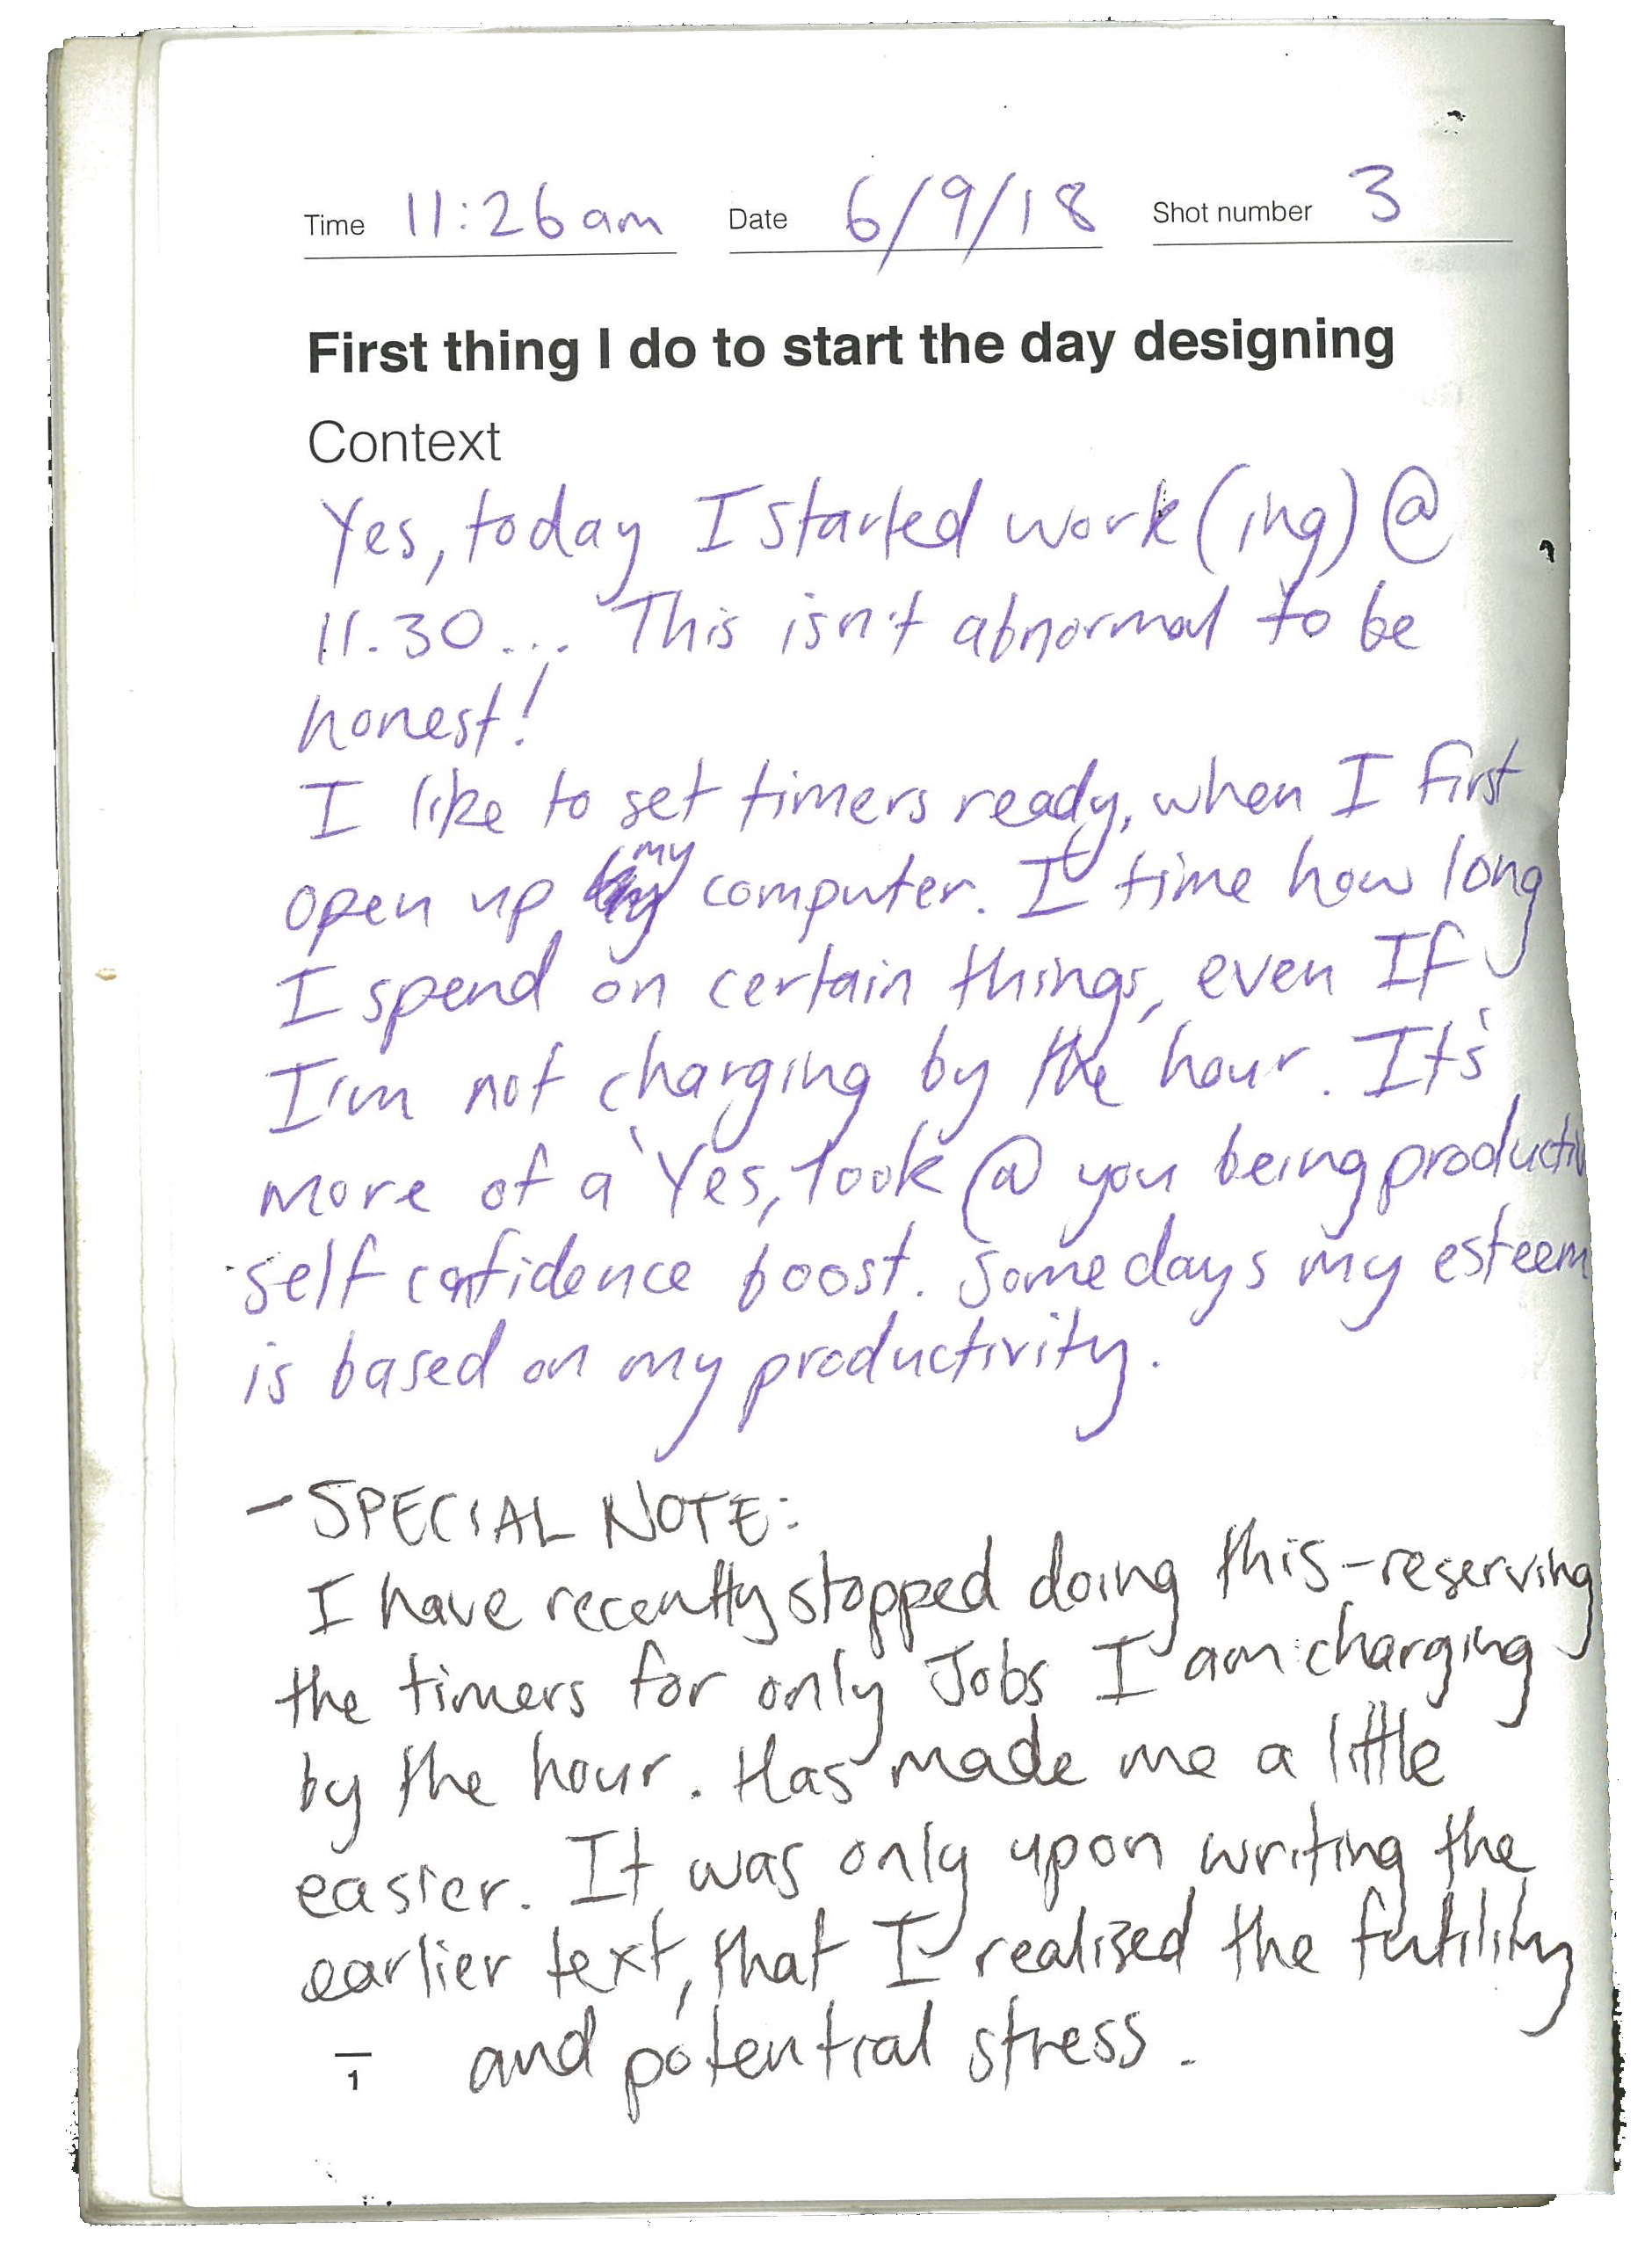 Time 11:26am Date 6/9/18 Shot number 3
First thing I do to start the day designing
Context
Yes, today I started work(ing) @
11.30... This isn't abnormal to be
honest!
I like to set timers ready, when I first
open up my computer. I time how long
I spend on certain things, even If
I'm not charging by the hour. It's
more of a 'Yes, look @ you being productiv
self confidence boost. Some days my esteem
is based on my productivity.
- SPECIAL NOTE:
I have recently stopped doing this - reserving
the timers for only Jobs I am charging
by the hour. Has made me a little
easier. It was only upon writing the
earlier text, that I realised the futility
and potential stress.
1